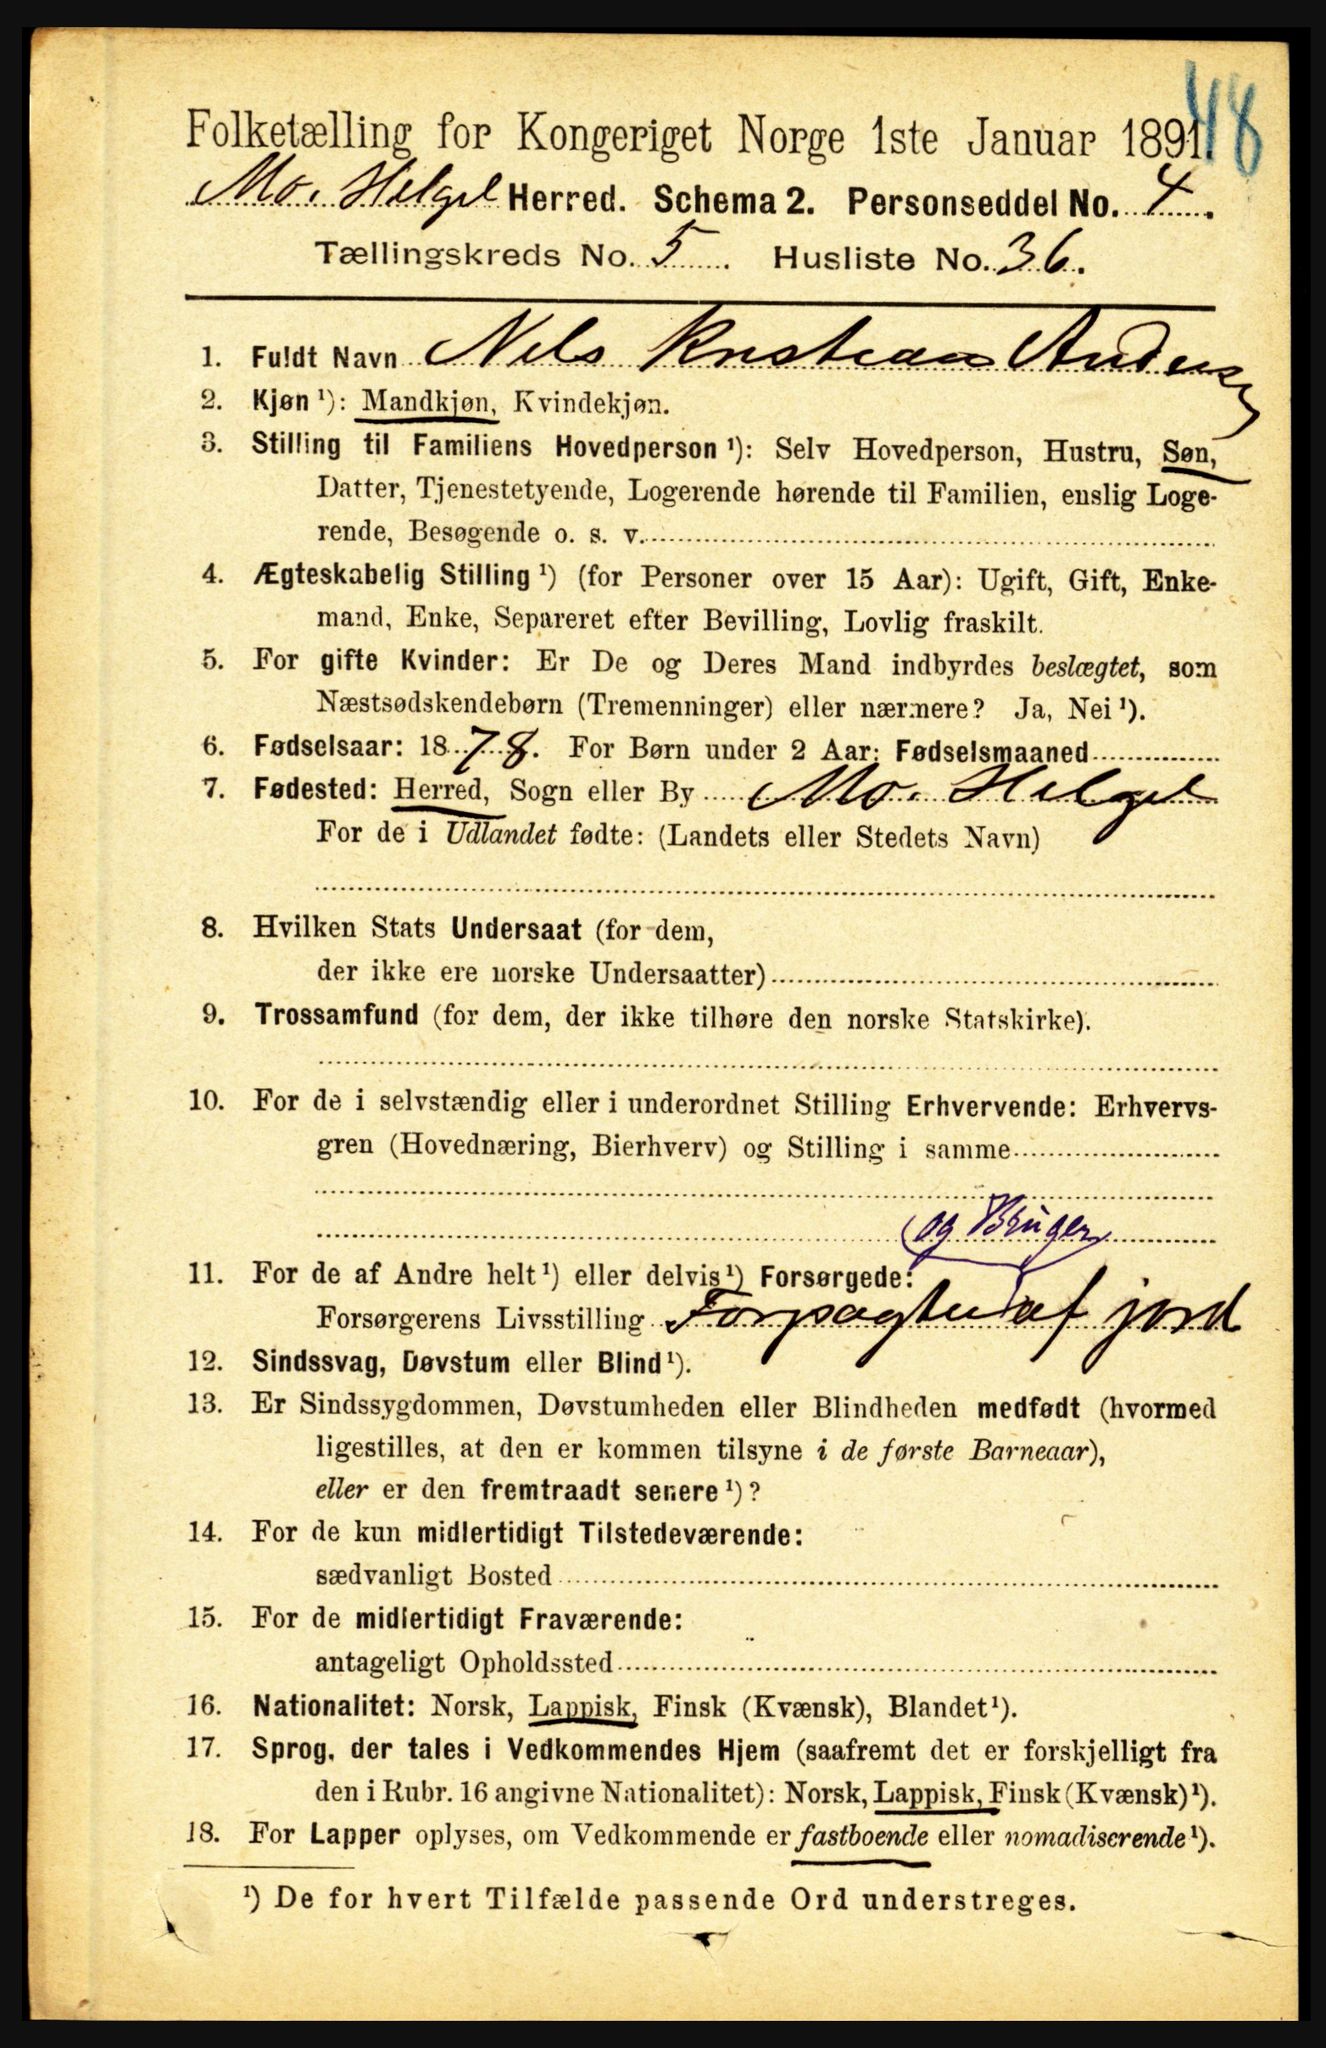 48
Folketælling for Kongeriget Norge 1ste Januar 1891.
Mo. Helgel Herred. Schema 2. Personseddel No. 4.
Tællingskreds No. 5. Husliste No. 36.
1. Fuldt Navn Nils Kristian Andersen
2. Kjøn ¹): Mandkjøn, Kvindekjøn.
3. Stilling til Familiens Hovedperson ¹): Selv Hovedperson, Hustru, Søn,
Datter, Tjenestetyende, Logerende hørende til Familien, enslig Loge-
rende, Besøgende o. s. v.
4. Ægteskabelig Stilling ¹) (for Personer over 15 Aar): Ugift, Gift, Enke-
mand, Enke, Separeret efter Bevilling, Lovlig fraskilt.
5. For gifte Kvinder: Er De og Deres Mand indbyrdes beslægtet, som
Næstsødskendebørn (Tremenninger) eller nærmere? Ja, Nei ¹).
6. Fødselsaar: 1878. For Børn under 2 Aar: Fødselsmaaned
7. Fødested: Herred, Sogn eller By Mo. Helgel
For de i Udlandet fødte: (Landets eller Stedets Navn)
8. Hvilken Stats Undersaat (for dem,
der ikke ere norske Undersaatter)
9. Trossamfund (for dem, der ikke tilhøre den norske Statskirke).
10. For de i selvstændig eller i underordnet Stilling Erhvervende: Erhvervs-
gren (Hovednæring, Bierhverv) og Stilling i samme
og Bruger
11. For de af Andre helt ¹) eller delvis ¹) Forsørgede:
Forsørgerens Livsstilling Forpagter af jord
12. Sindssvag, Døvstum eller Blind ¹).
13. Er Sindssygdommen, Døvstumheden eller Blindheden medfødt (hvormed
ligestilles, at den er kommen tilsyne i de første Barneaar),
eller er den fremtraadt senere ¹)?
14. For de kun midlertidigt Tilstedeværende:
sædvanligt Bosted
15. For de midlertidigt Fraværende:
antageligt Opholdssted
16. Nationalitet: Norsk, Lappisk, Finsk (Kvænsk), Blandet ¹).
17. Sprog, der tales i Vedkommendes Hjem (saafremt det er forskjelligt fra
den i Rubr. 16 angivne Nationalitet): Norsk, Lappisk, Finsk (Kvænsk) ¹).
18. For Lapper oplyses, om Vedkommende er fastboende eller nomadiserende ¹).
¹) De for hvert Tilfælde passende Ord understreges.